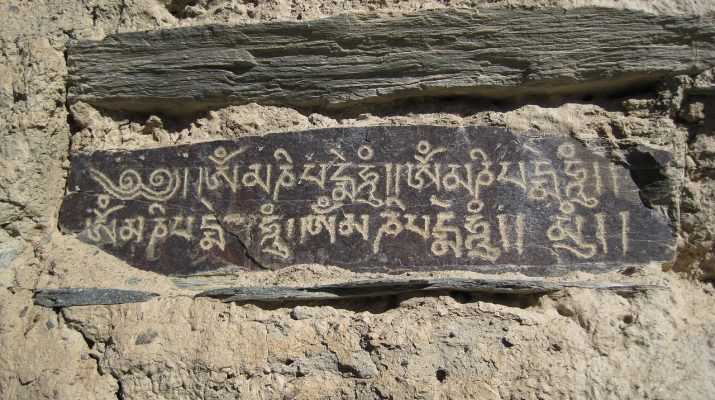 ༄༅།།ཨོཾམཎིཔདྨེཧཱུཾ།།ཨོཾམཎིཔདྨེཧཱུཾ།།
ཨོཾམཎིཔདྨེཧཱུཾ།ཨོཾམཎིཔདྨེཧཱུཾ།།